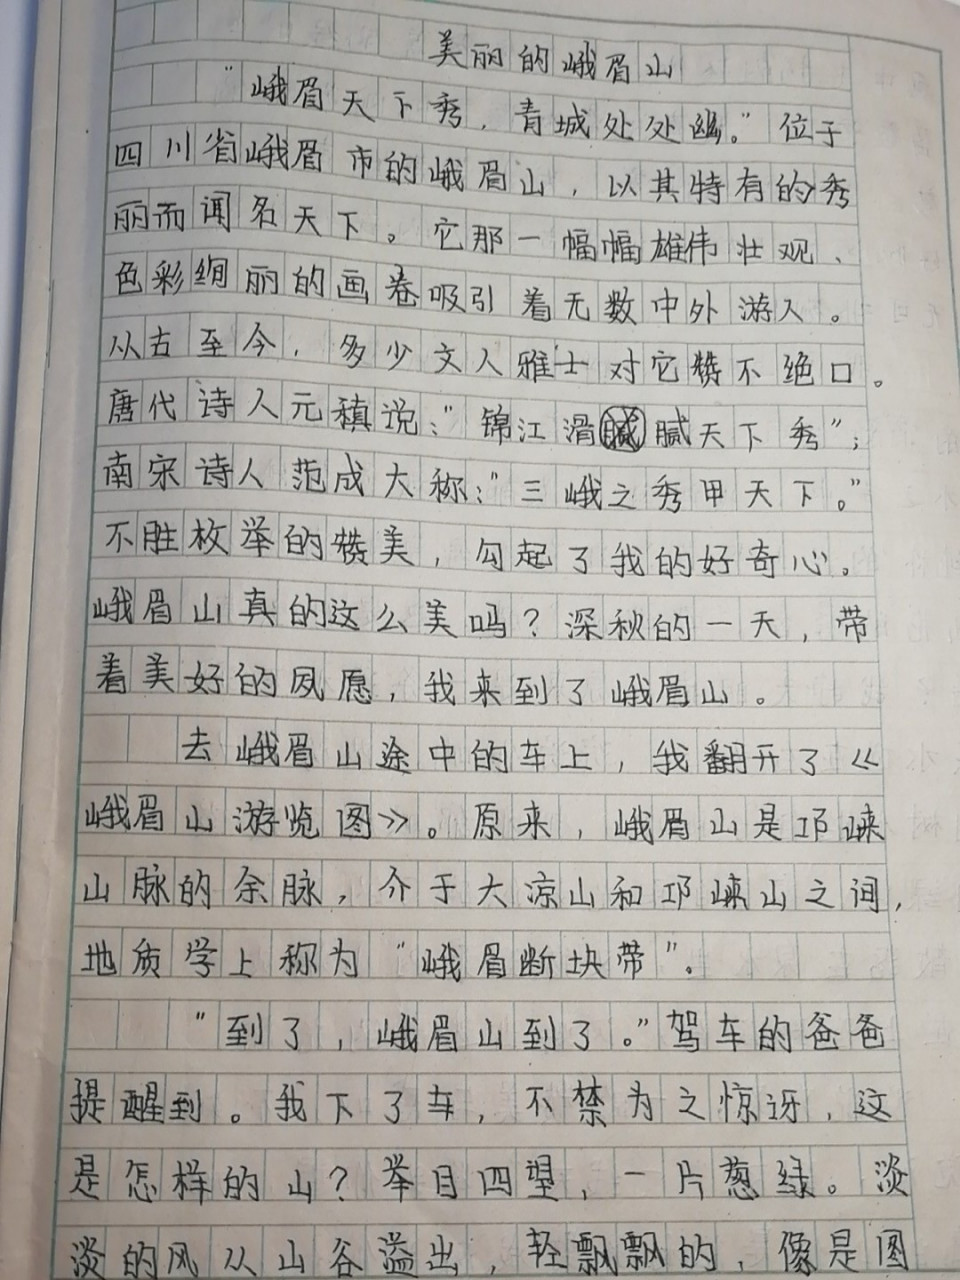 美丽的峨眉山
"峨眉天下秀，青城处处幽。"位于
四川省峨眉市的峨眉山，以其特有的秀
丽而闻名天下。它那一幅幅雄伟壮观、
色彩绚丽的画卷吸引着无数中外游人。
从古至今，多少文人雅士对它赞不绝口。
唐代诗人元稹说："锦江滑腻天下秀"；
南宋诗人范成大称："三峨之秀甲天下。"
不胜枚举的赞美，勾起了我的好奇心。
峨眉山真的这么美吗？深秋的一天，带
着美好的夙愿，我来到了峨眉山。
去峨眉山途中的车上，我翻开了《
峨眉山游览图》。原来，峨眉山是邛崃
山脉的余脉，介于大凉山和邛崃山之间，
地质学上称为"峨眉断块带"。
"到了，峨眉山到了。"驾车的爸爸
提醒到。我下了车，不禁为之惊讶，这
是怎样的山？举目四望，一片葱绿。淡
淡的风从山谷溢出，轻飘飘的，像是图